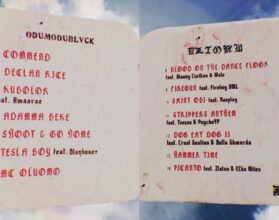 ODUMODUBLVCK
COMMEND
DECLAN RICE
KUBOLOR
feat. Amaarae
ADAMMA BEKE
SHOOT & GO HOME
TESLA BOY feat. Blanhuner
MC OLUOMO
BLOOD ON THE DANCE FLOOR
feat. Bloody Civilian & Wale
FIREGUN feat. Fireboy DML
SAINT OBI feat. Reeplay
STRIPPERS ANTHEM
feat. Teezee & PsychoYP
DOG EAT DOG II
feat. Cruel Santino & Bella Shmurda
HAMMER TIME
PICANTO feat. Zlatan & ECko Miles